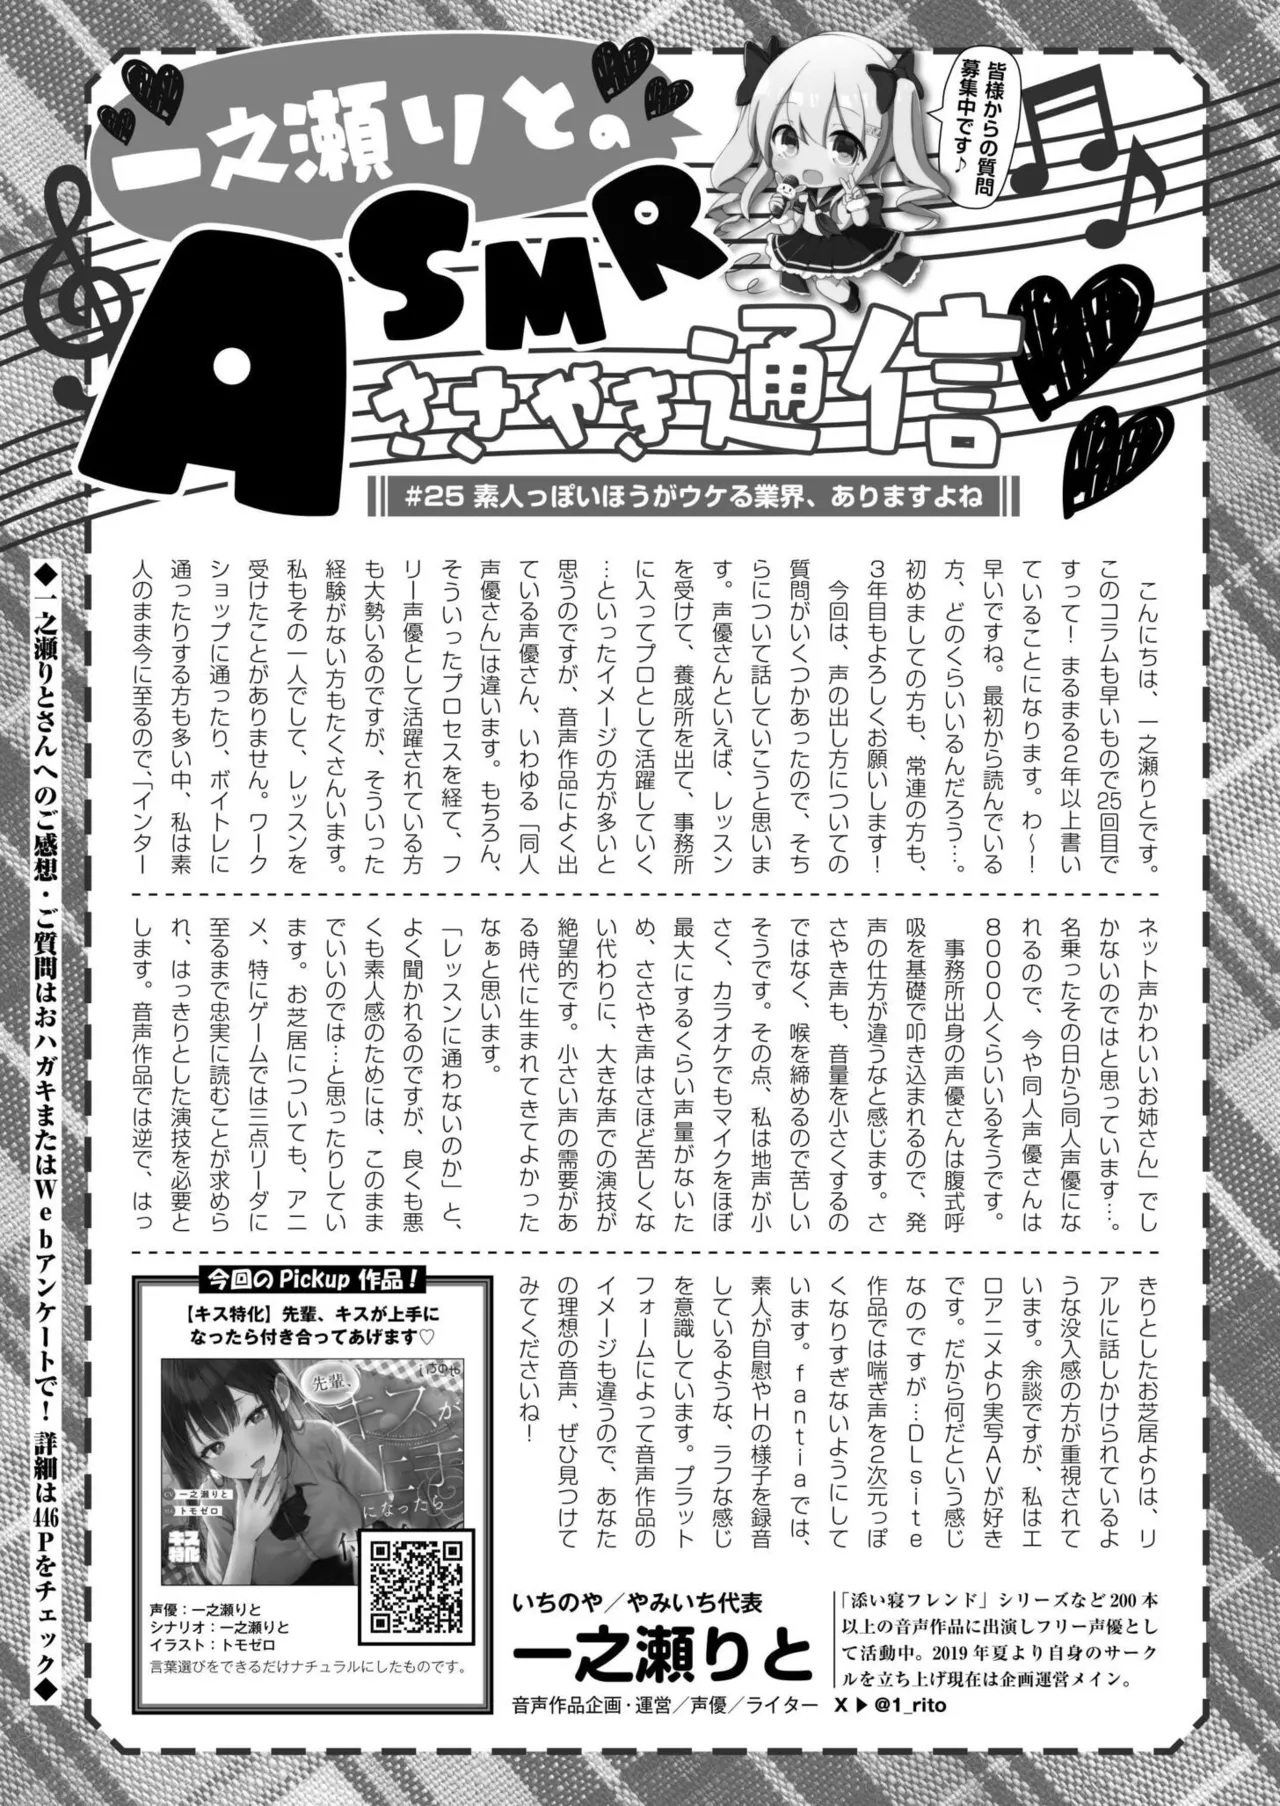 一之瀬りとの
ASMR
ささやき通信
皆様からの質問
募集中です♪
#25 素人っぽいほうがウケる業界、ありますよね
こんにちは、一之瀬りとです。
このコラムも早いもので25回目で
すって！まるまる2年以上書い
ていることになります。わ〜！
早いですね。最初から読んでいる
方、どのくらいいるんだろう…。
初めましての方も、常連の方も、
3年目もよろしくお願いします！
今回は、声の出し方についての
質問がいくつかあったので、そち
らについて話していこうと思いま
す。声優さんといえば、レッスン
を受けて、養成所を出て、事務所
に入ってプロとして活躍していく
…といったイメージの方が多いと
思うのですが、音声作品によく出
ている声優さん、いわゆる「同人
声優さん」は違います。もちろん、
そういったプロセスを経て、フ
リー声優として活躍されている方
も大勢いるのですが、そういった
経験がない方もたくさんいます。
私もその一人でして、レッスンを
受けたことがありません。ワーク
ショップに通ったり、ボイトレに
通ったりする方も多い中、私は素
人のまま今に至るので、「インター
ネット声かわいいお姉さん」でし
かないのではと思っています…。
名乗ったその日から同人声優にな
れるので、今や同人声優さんは
8000人くらいいるそうです。
事務所出身の声優さんは腹式呼
吸を基礎で叩き込まれるので、発
声の仕方が違うなと感じます。さ
さやき声も、音量を小さくするの
ではなく、喉を締めるので苦しい
そうです。その点、私は地声が小
さく、カラオケでもマイクをほぼ
最大にするくらい声量がないた
め、ささやき声はさほど苦しくな
い代わりに、大きな声での演技が
絶望的です。小さい声の需要があ
る時代に生まれてきてよかった
なぁと思います。
「レッスンに通わないのか」と、
よく聞かれるのですが、良くも悪
くも素人感のためには、このまま
でいいのでは…と思ったりしてい
ます。お芝居についても、アニ
メ、特にゲームでは三点リーダに
至るまで忠実に読むことが求めら
れ、はっきりとした演技を必要と
します。音声作品では逆で、はっ
きりとしたお芝居よりは、リ
アルに話しかけられているよ
うな没入感の方が重視されて
います。余談ですが、私はエ
ロアニメより実写AVが好き
です。だから何だという感じ
なのですが…DLsite
作品では喘ぎ声を2次元っぽ
くなりすぎないようにして
います。fantiaでは、
素人が自慰やHの様子を録音
しているような、ラフな感じ
を意識しています。プラット
フォームによって音声作品の
イメージも違うので、あなた
の理想の音声、ぜひ見つけて
みてくださいね！
今回のPickup作品！
【キス特化】先輩、キスが上手に
なったら付き合ってあげます♡
いちのや
先輩、
キスが
上手
になったら
付
CV 一之瀬りと
トモゼロ
キス
特化
声優：一之瀬りと
シナリオ：一之瀬りと
イラスト：トモゼロ
言葉選びをできるだけナチュラルにしたものです。
いちのや／やみいち代表
一之瀬りと
音声作品企画・運営／声優／ライター
「添い寝フレンド」シリーズなど200本
以上の音声作品に出演しフリー声優とし
て活動中。2019年夏より自身のサーク
ルを立ち上げ現在は企画運営メイン。
X▶@1_rito
◆一之瀬りとさんへのご感想・ご質問はおハガキまたはWebアンケートで！詳細は446Pをチェック◆